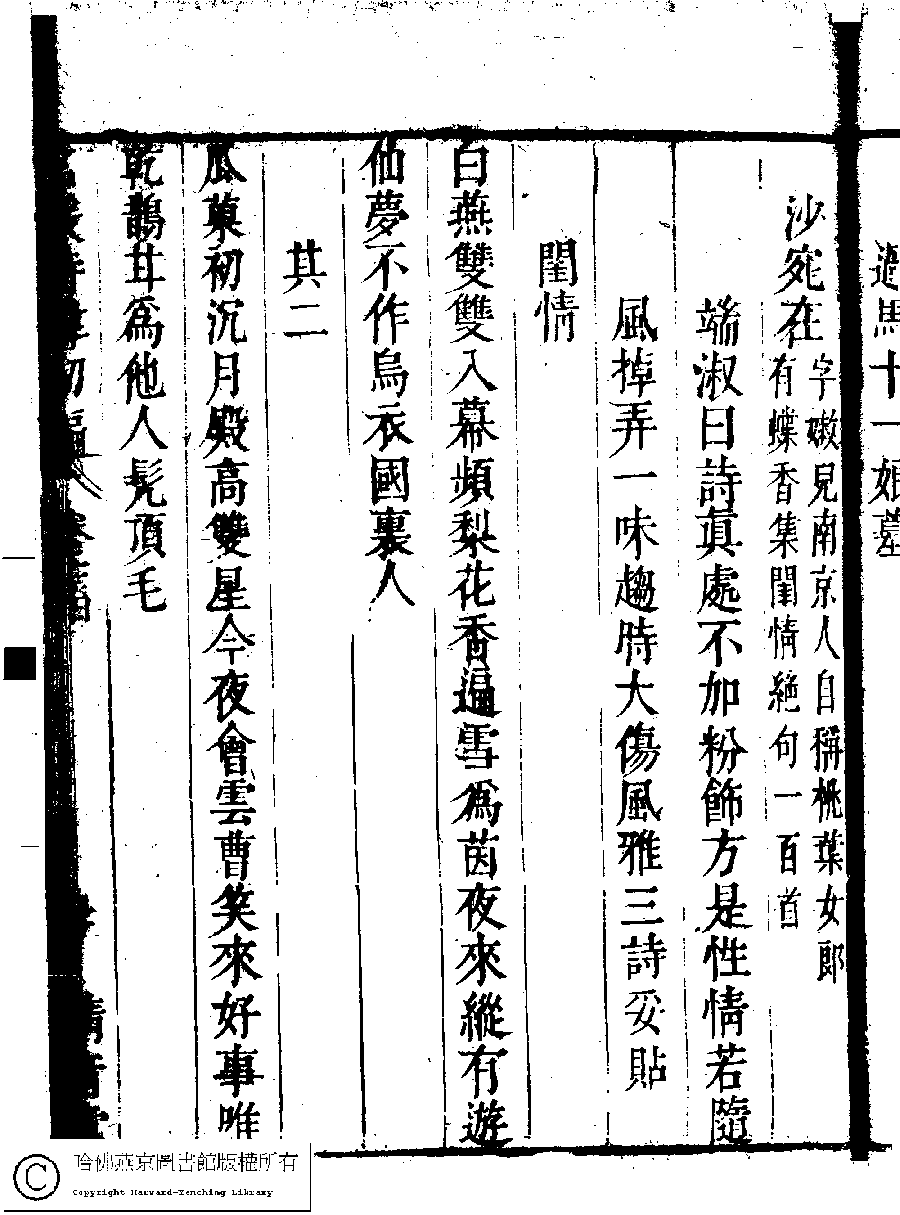 遣馬十一娘墓
沙宛在 字嫩兒南京人自稱桃葉女郎
有蝶香集閨情絶句一百首
端淑曰詩眞處不加粉飾方是性情若隨
風掉弄一味趨時大傷風雅三詩妥貼
閨情
白燕雙雙入幕頻梨花香遍雪爲茵夜來縱有遊
仙夢不作烏衣國裏人
其二
瓜菓初沉月殿高雙星今夜會雲曹笑來好事唯
乾鵲甘爲他人髡頂毛
哈佛燕京圖書館版權所有
Copyright Harvard-Yenching Library